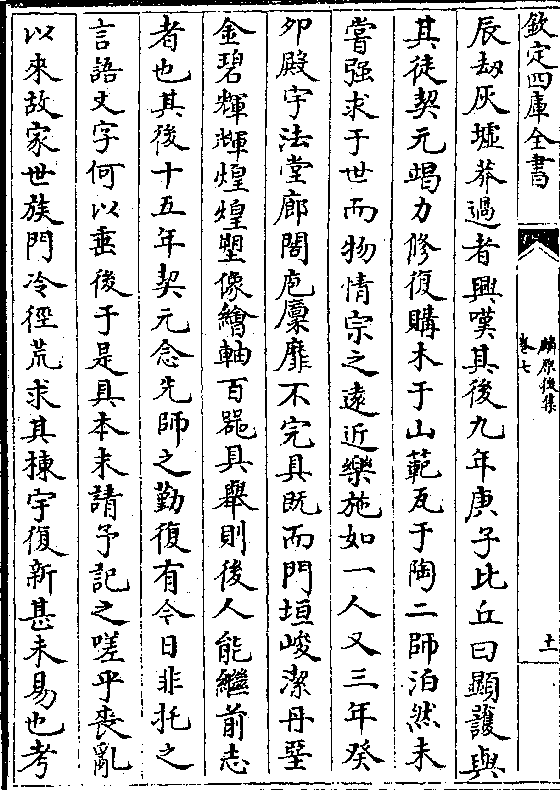 欽定四庫全書
麟原後集
卷七
十一
辰劫灰墟莽過者興嘆其後九年庚子比丘曰顯護與
其徒契元竭力修復購木于山範瓦于陶二師泊然未
嘗强求于世而物情宗之遠近樂施如一人又三年癸
夘殿宇法堂廊閣庖廩靡不完具既而門垣峻潔丹堊
金碧輝輝煌煌塑像繪軸百器具舉則後人能繼前志
者也其後十五年契元念先師之勤復有今日非托之
言語文字何以垂後于是具本末請予記之嗟乎喪亂
以來故家世族門冷徑荒求其棟宇復新甚未易也考